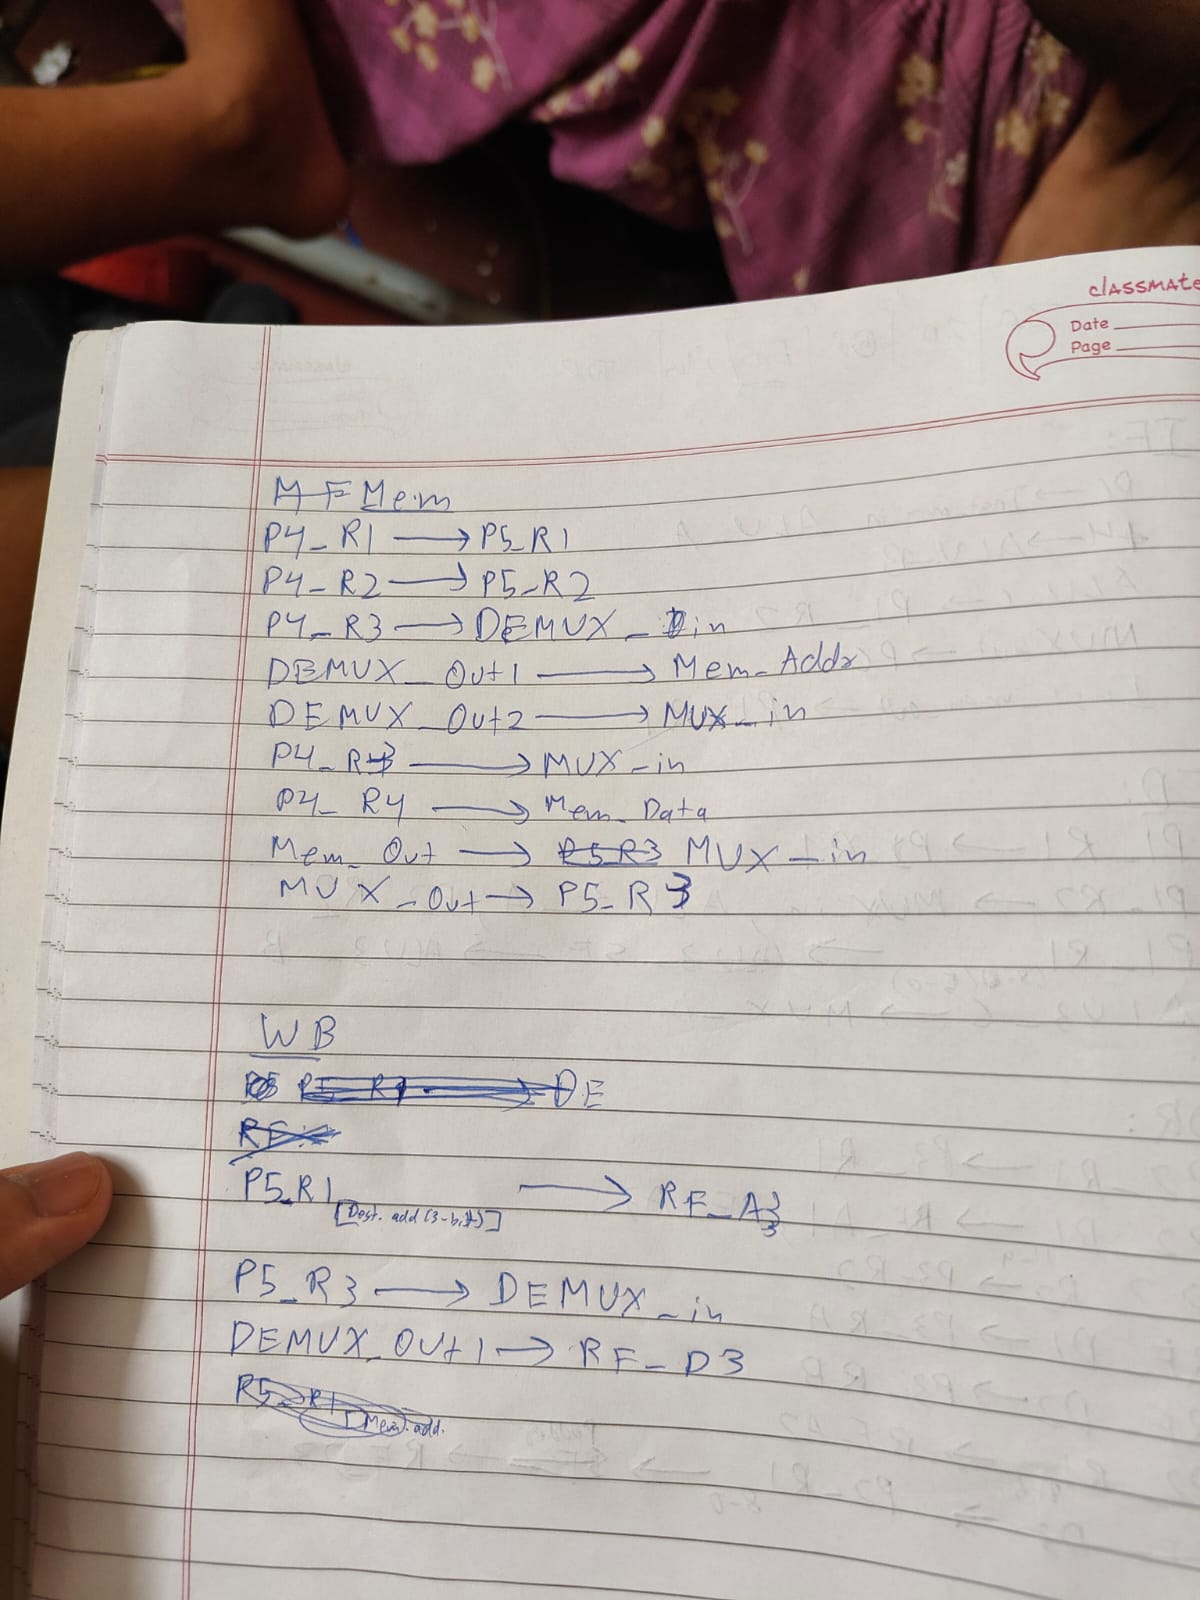 classmate
Date
Page
Mem
P4_R1 → P5_R1
P4_R2 → P5_R2
P4_R3 → DEMUX_in
DEMUX_Out1 → Mem_Addr
DEMUX_Out2 → MUX_in
P4_R3 → MUX_in
P4_R4 → Mem_Data
Mem_Out → P5_R3 MUX_in
MUX_Out → P5_R3
WB
DE
P5_R1 [Dest. add (3-bit)] → RF_A3
P5_R3 → DEMUX_in
DEMUX_OUt1 → RF_D3
Mem. add.